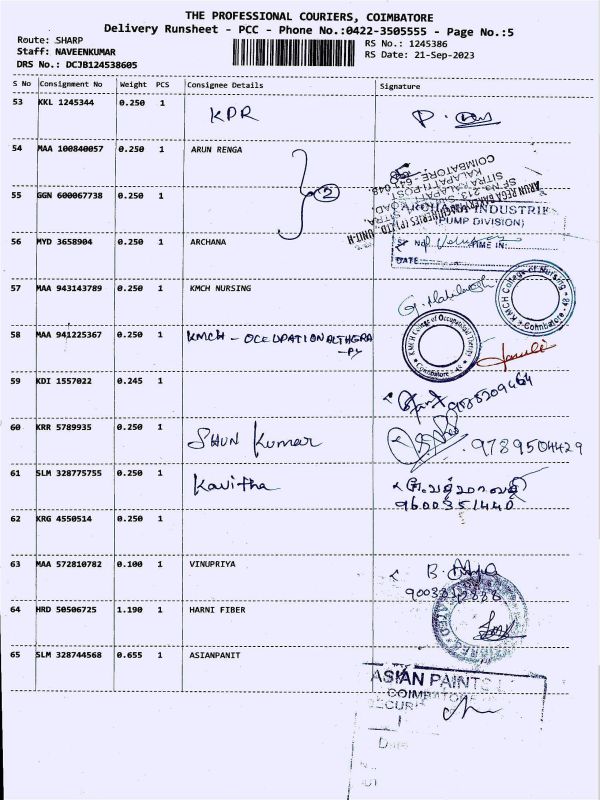 THE PROFESSIONAL COURIERS, COIMBATORE
Delivery Runsheet - PCC - Phone No.:0422-3505555 - Page No.:5
Route: SHARP
Staff: NAVEENKUMAR
DRS No.: DCJB124538605
RS No.: 1245386
RS Date: 21-Sep-2023
S No Consignment No Weight PCS Consignee Details Signature
53 KKL 1245344 0.250 1 KPR
54 MAA 100840057 0.250 1 ARUN RENGA
COIMBATORE
55 GGN 600067738 0.250 1 2
INDUSTRIES
(PUMP DIVISION)
56 MYD 3658904 0.250 1 ARCHANA
TIME IN:
DATE
57 MAA 943143789 0.250 1 KMCH NURSING
KMCH College of Nursing
Coimbatore - 48
58 MAA 941225367 0.250 1 KMCH - OCCUPATIONALTHERA
-PY
KMCH College of Occupational Therapy
Coimbatore - 48
59 KDI 1557022 0.245 1
60 KRR 5789935 0.250 1 SHUN Kumar
9789504429
61 SLM 328775755 0.250 1 Kavitha
9600351440
62 KRG 4550514 0.250 1
63 MAA 572810782 0.100 1 VINUPRIYA
64 HRD 50506725 1.190 1 HARNI FIBER
65 SLM 328744568 0.655 1 ASIANPANIT
ASIAN PAINTS